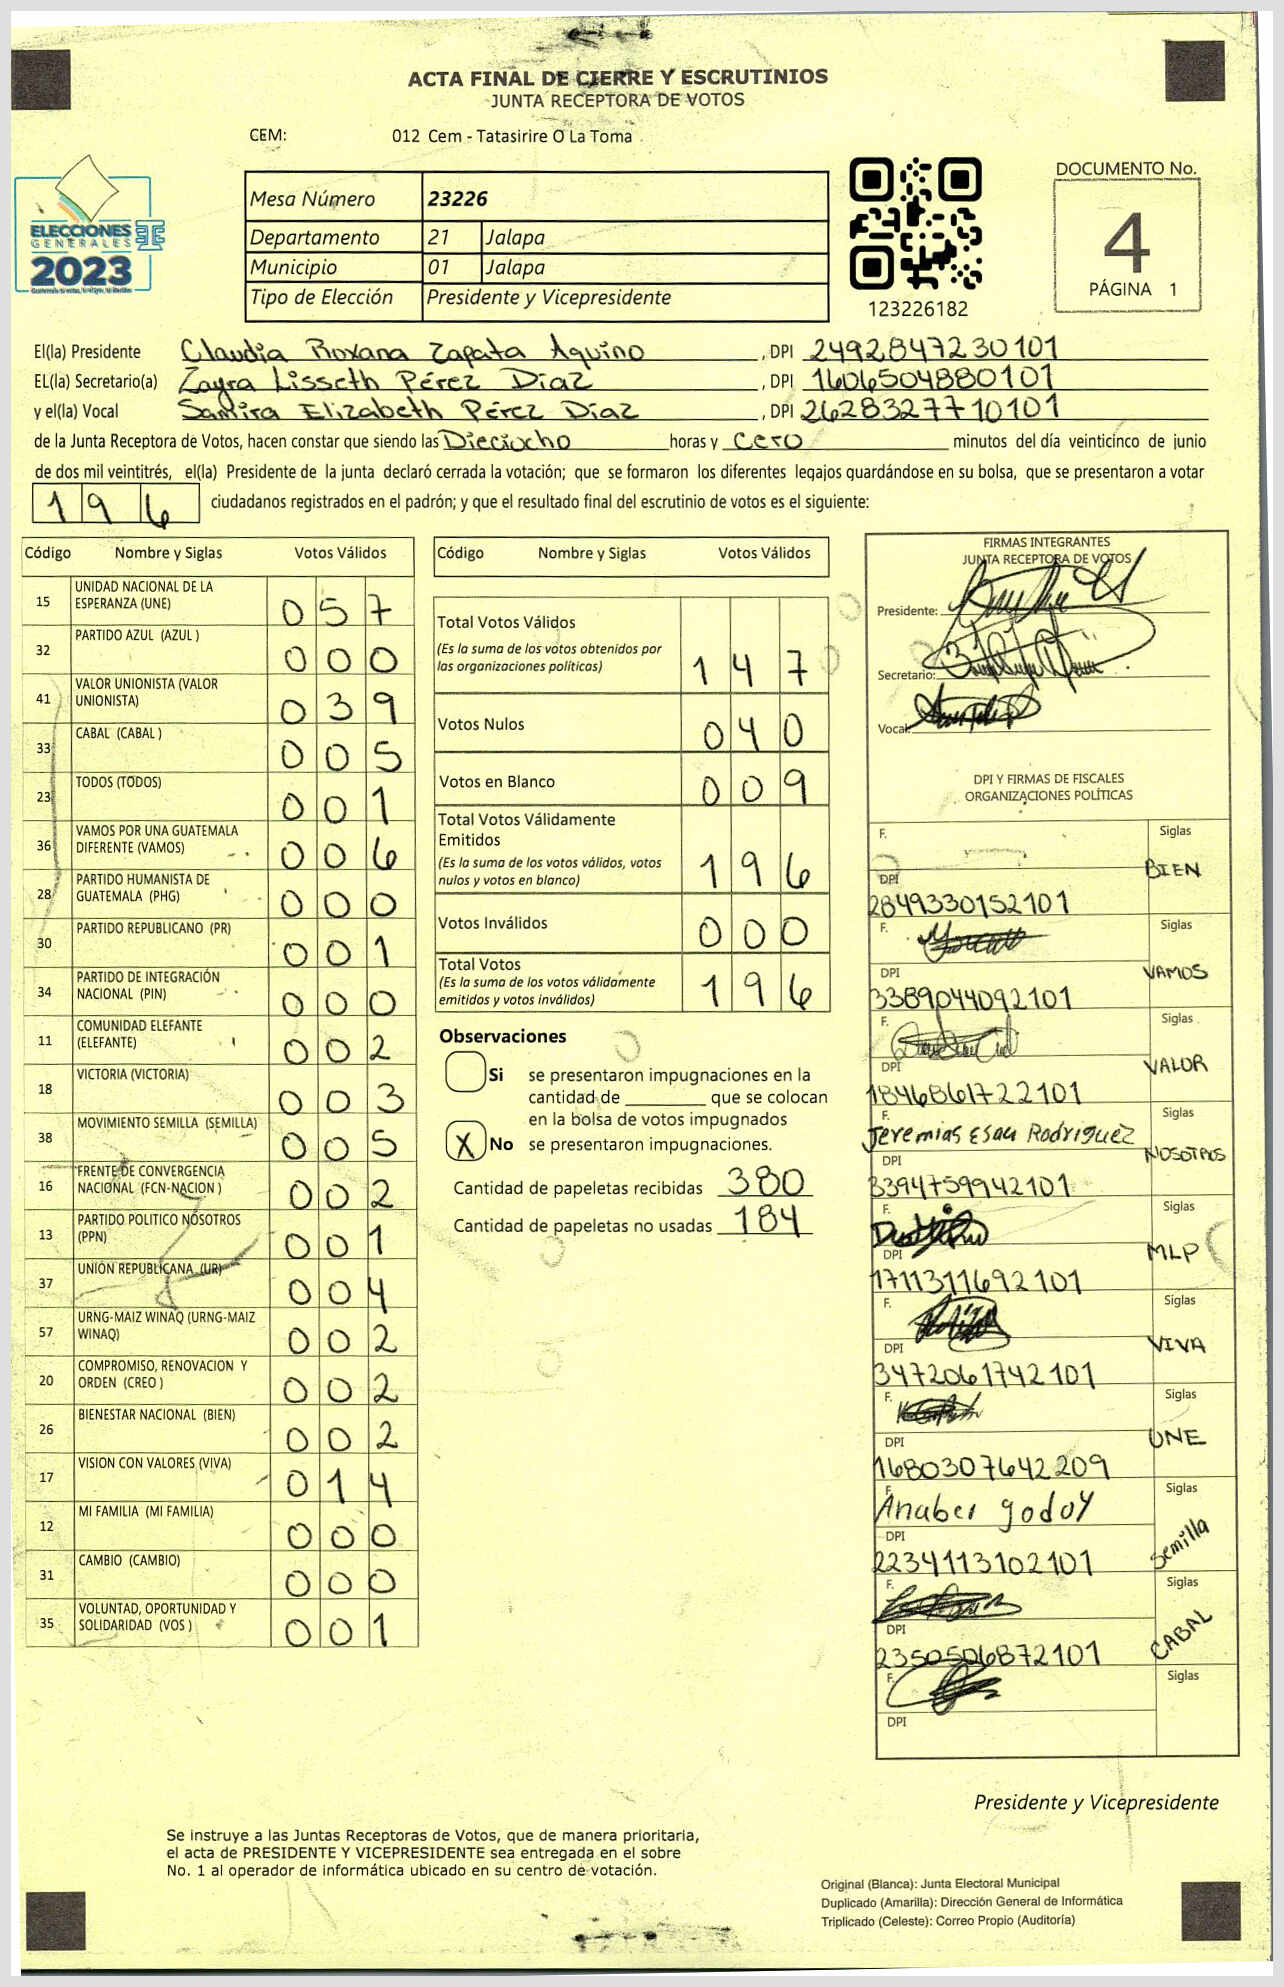 ACTA FINAL DE CIERRE Y ESCRUTINIOS
JUNTA RECEPTORA DE VOTOS
CEM: 012 Cem - Tatasirire O La Toma
ELECCIONES
GENERALES
2023
Mesa Número 23226
Departamento 21 Jalapa
Municipio 01 Jalapa
Tipo de Elección Presidente y Vicepresidente
123226182
DOCUMENTO No.
4
PÁGINA 1
El(la) Presidente Claudia Roxana Zapata Aquino, DPI 2492847230101
EL(la) Secretario(a) Zayra Lisseth Pérez Díaz, DPI 1606504880101
y el(la) Vocal Samira Elizabeth Pérez Díaz, DPI 2628327710101
de la Junta Receptora de Votos, hacen constar que siendo las Dieciocho horas y cero minutos del día veinticinco de junio
de dos mil veintitrés, el(la) Presidente de la junta declaró cerrada la votación; que se formaron los diferentes legajos guardándose en su bolsa, que se presentaron a votar
196 ciudadanos registrados en el padrón; y que el resultado final del escrutinio de votos es el siguiente:
Código Nombre y Siglas Votos Válidos
15 UNIDAD NACIONAL DE LA
ESPERANZA (UNE) 057
32 PARTIDO AZUL (AZUL ) 000
41 VALOR UNIONISTA (VALOR
UNIONISTA) 039
33 CABAL (CABAL ) 005
23 TODOS (TODOS) 001
36 VAMOS POR UNA GUATEMALA
DIFERENTE (VAMOS) 006
28 PARTIDO HUMANISTA DE
GUATEMALA (PHG) 000
30 PARTIDO REPUBLICANO (PR) 001
34 PARTIDO DE INTEGRACIÓN
NACIONAL (PIN) 000
11 COMUNIDAD ELEFANTE
(ELEFANTE) 002
18 VICTORIA (VICTORIA) 003
38 MOVIMIENTO SEMILLA (SEMILLA) 005
16 FRENTE DE CONVERGENCIA
NACIONAL (FCN-NACION ) 002
13 PARTIDO POLITICO NOSOTROS
(PPN) 001
37 UNION REPUBLICANA (UR) 004
57 URNG-MAIZ WINAQ (URNG-MAIZ
WINAQ) 002
20 COMPROMISO, RENOVACION Y
ORDEN (CREO ) 002
26 BIENESTAR NACIONAL (BIEN) 002
17 VISION CON VALORES (VIVA) 014
12 MI FAMILIA (MI FAMILIA) 000
31 CAMBIO (CAMBIO) 000
35 VOLUNTAD, OPORTUNIDAD Y
SOLIDARIDAD (VOS ) 001
Código Nombre y Siglas Votos Válidos
Total Votos Válidos
(Es la suma de los votos obtenidos por
las organizaciones políticas) 147
Votos Nulos 040
Votos en Blanco 009
Total Votos Válidamente
Emitidos
(Es la suma de los votos válidos, votos
nulos y votos en blanco) 196
Votos Inválidos 000
Total Votos
(Es la suma de los votos válidamente
emitidos y votos inválidos) 196
Observaciones
Si se presentaron impugnaciones en la
cantidad de ________ que se colocan
en la bolsa de votos impugnados
X No se presentaron impugnaciones.
Cantidad de papeletas recibidas 380
Cantidad de papeletas no usadas 184
FIRMAS INTEGRANTES
JUNTA RECEPTORA DE VOTOS
Presidente:
Secretario:
Vocal:
DPI Y FIRMAS DE FISCALES
ORGANIZACIONES POLÍTICAS
F. Siglas
BIEN
DPI
2849330152101
F. Siglas
VAMOS
DPI
3389044092101
F. Siglas
VALOR
DPI
1846861722101
F. Siglas
Jeremias Esau Rodriguez
NOSOTROS
DPI
3394759942101
F. Siglas
MLP
DPI
1711311692101
F. Siglas
VIVA
DPI
3472061742101
F. Siglas
UNE
DPI
1680307642209
F. Siglas
Anaber godoy
Semilla
DPI
2234113102101
F. Siglas
CABAL
DPI
2350506872101
F. Siglas
DPI
Presidente y Vicepresidente
Se instruye a las Juntas Receptoras de Votos, que de manera prioritaria,
el acta de PRESIDENTE Y VICEPRESIDENTE sea entregada en el sobre
No. 1 al operador de informática ubicado en su centro de votación.
Original (Blanca): Junta Electoral Municipal
Duplicado (Amarilla): Dirección General de Informática
Triplicado (Celeste): Correo Propio (Auditoría)